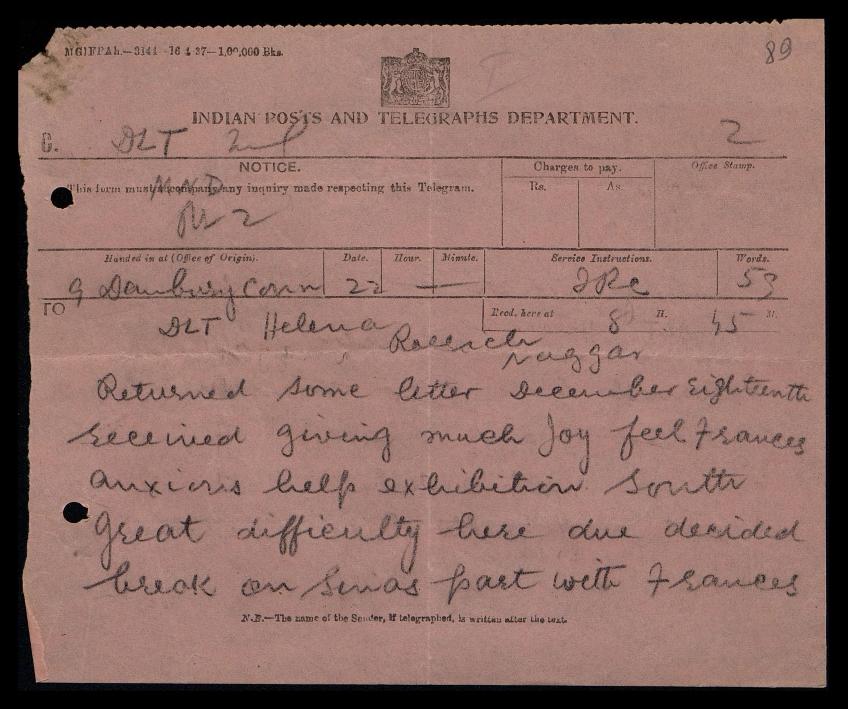 MGIFPAh.—3144—16-4-37—1,00,000 Bks.
89
INDIAN POSTS AND TELEGRAPHS DEPARTMENT.
C. DLT 2
NOTICE.
Charges to pay.
Office Stamp.
This form must accompany any inquiry made respecting this Telegram.
Rs. As.
Handed in at (Office of Origin). Date. Hour. Minute. Service Instructions. Words.
9 Danbury Conn 22 — — IRC 53
TO
Recd. here at 8 H. 45 M.
DLT Helena
Roerich
Naggar
Returned some letter December Eighteenth
received giving much Joy feel Frances
anxious help exhibition South
Great difficulty here due decided
break on Sinas part with Frances
N.B.—The name of the Sender, if telegraphed, is written after the text.